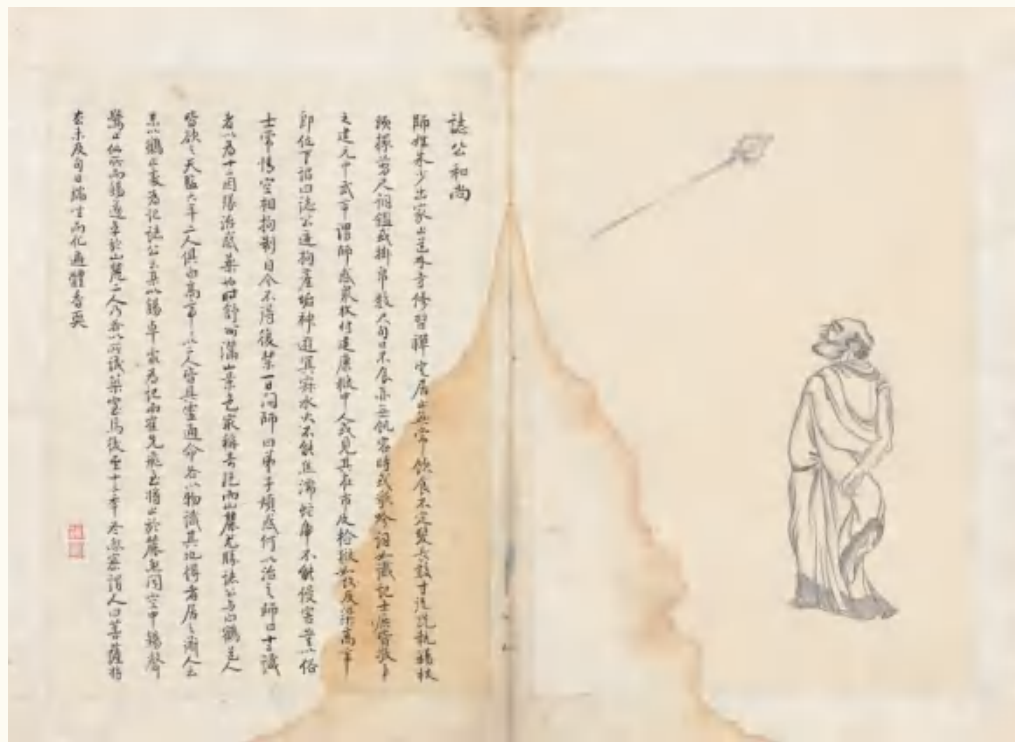 誌公和尚
師姓朱少出家止道林寺修習禪定居止無常飲食不定髮長數寸徒跣執錫杖
頭擐剪尺銅鑑或掛帛數尺旬日不食亦無飢容時或歌吟詞如讖記士庶皆敬事
之建元中武帝謂師惑衆收付建康獄中人或見其在市及檢獄如故及梁高帝
即位下詔曰誌公迹拘塵垢神遊冥寂水火不能焦濡蛇虎不能侵害豈以俗
士常情空相拘制自今不得復禁一日問師曰弟子煩惑何以治之師曰十二識
者以為十二因緣治惑藥也時舒州灊山景色最稱奇絕而山麓尤勝誌公與白鶴道人
皆欲之天監六年二人俱白高帝以二人皆具靈通命各以物識其地得者居之道人云
某以鶴止處為記誌公云某以錫卓處為記而隺先飛去將止於麓忽聞空中錫聲
驚止他所而錫遂卓於山麓二人乃各以所識築室焉後至十三年冬忽密謂人曰菩薩將
去未及旬日端坐而化遍體香耎